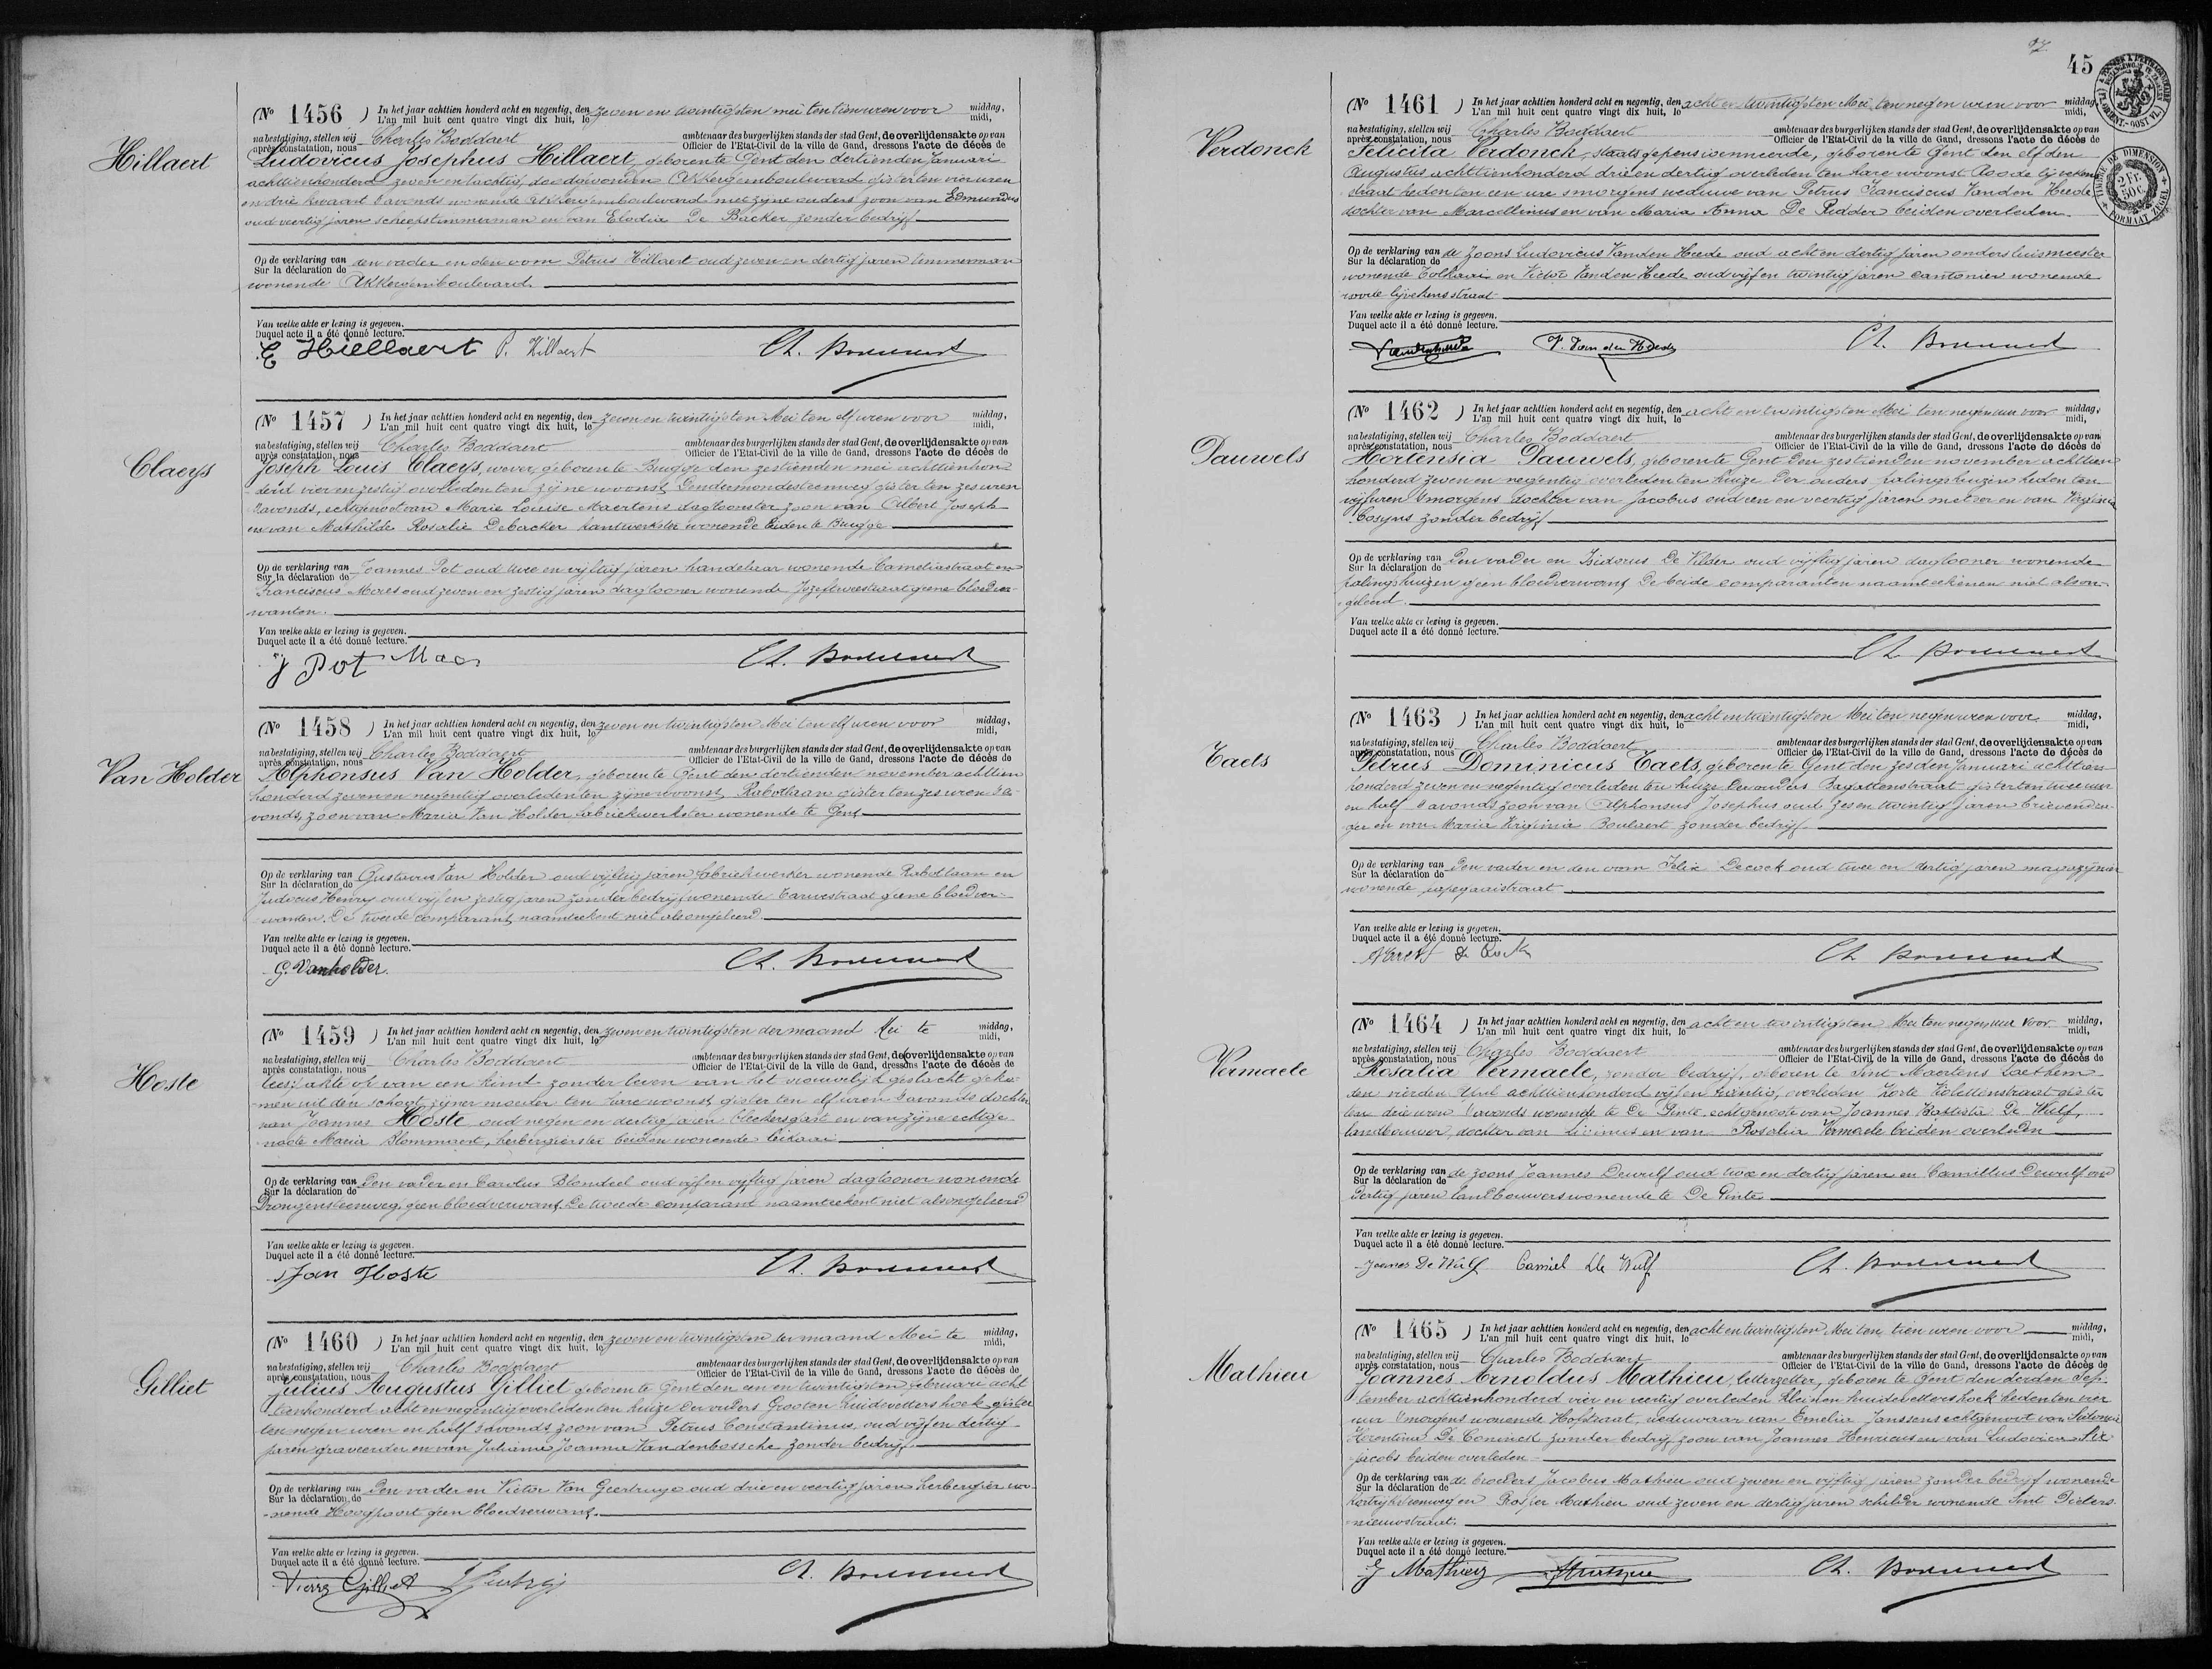 Hillaert
(No 1456 ) In het jaar achttien honderd acht en negentig, den zeven en twintigsten mei ten tien uren voor middag,
L'an mil huit cent quatre vingt dix huit, le midi,
na bestatiging, stellen wij Charles Boddaert ambtenaar des burgerlijken stands der stad Gent, de overlijdensakte op van
après constatation, nous Officier de l'Etat-Civil de la ville de Gand, dressons l'acte de décès de
Ludovicus Josephus Hillaert, geboren te Gent den dertienden Januari
achttienhonderd zeven en tachtig, dood gevonden Akkergemboulevard gister ten vier uren
en drie kwaart s'avonds wonende Akkergemboulevard met zijne ouders zoon van Edmundus
oud veertig jaren scheepstimmerman en van Elodia De Backer zonder bedrijf
Op de verklaring van den vader en den oom Petrus Hillaert oud zeven en dertig jaren timmerman
Sur la déclaration de
wonende Akkergemboulevard.
Van welke akte er lezing is gegeven.
Duquel acte il a été donné lecture.
E Hiellaert P. Hillaert Ch. Boddaert
Claeys
(No 1457 ) In het jaar achttien honderd acht en negentig, den zeven en twintigsten Mei ten elf uren voor middag,
L'an mil huit cent quatre vingt dix huit, le midi,
na bestatiging, stellen wij Charles Boddaert ambtenaar des burgerlijken stands der stad Gent, de overlijdensakte op van
après constatation, nous Officier de l'Etat-Civil de la ville de Gand, dressons l'acte de décès de
Joseph Louis Claeys, wever, geboren te Brugge den zestienden mei achttienhon-
derd vier en zestig overleden ten zijne woonst Dendermondesteenweg gister ten zes uren
s'avonds, echtgenoot van Marie Louise Maertens dagloonster zoon van Albert Joseph
en van Mathilde Rosalie Debacker kantwerkster wonende beiden te Brugge
Op de verklaring van Joannes Pot oud twee en vijftig jaren handelaar wonende Cameliastraat en
Sur la déclaration de
Franciscus Maes oud zeven en zestig jaren daglooner wonende Jozefswestraat geene bloedver-
wanten.
Van welke akte er lezing is gegeven.
Duquel acte il a été donné lecture.
J Pot Maes Ch. Boddaert
Van Holder
(No 1458 ) In het jaar achttien honderd acht en negentig, den zeven en twintigsten Mei ten elf uren voor middag,
L'an mil huit cent quatre vingt dix huit, le midi,
na bestatiging, stellen wij Charles Boddaert ambtenaar des burgerlijken stands der stad Gent, de overlijdensakte op van
après constatation, nous Officier de l'Etat-Civil de la ville de Gand, dressons l'acte de décès de
Alphonsus Van Holder, geboren te Gent den dertienden november achttien
honderd zeven en negentig overleden ten zijne woonst Rabotlaan gister ten zes uren s'a-
vonds, zoon van Maria Van Holder fabriekwerkster wonende te Gent
Op de verklaring van Gustavus Van Holder oud vijftig jaren fabriekwerker wonende Rabotlaan en
Sur la déclaration de
Judocus Henry oud vijf en zestig jaren zonder bedrijf wonende Tarwestraat geene bloedver-
wanten. De tweede comparant naamteekent niet als ongeleerd.
Van welke akte er lezing is gegeven.
Duquel acte il a été donné lecture.
G. Vanholder. Ch. Boddaert
Hoste
(No 1459 ) In het jaar achttien honderd acht en negentig, den zeven en twintigsten der maand Mei te middag,
L'an mil huit cent quatre vingt dix huit, le midi,
na bestatiging, stellen wij Charles Boddaert ambtenaar des burgerlijken stands der stad Gent, de (overlijdensakte op van
après constatation, nous Officier de l'Etat-Civil de la ville de Gand, dressons l'acte de décès de
lees) akte op van een kind zonder leven van het vrouwelijk geslacht geko-
men uit den schoot zijner moeder ten hare woonst gister ten elf uren s'avonds dochter
van Joannes Hoste oud negen en dertig jaren bleekersgast en van zijne echtge-
noote Maria Blommaert, herbergierster beiden wonende Leikaai
Op de verklaring van Den vader en Carolus Blondeel oud vijf en vijftig jaren daglooner wonende
Sur la déclaration de
Drongensteenweg, geen bloedverwant. De tweede comparant naamteekent niet als ongeleerd
Van welke akte er lezing is gegeven.
Duquel acte il a été donné lecture.
Jan Hoste Ch. Boddaert
Gilliet
(No 1460 ) In het jaar achttien honderd acht en negentig, den zeven en twintigsten der maand Mei te middag,
L'an mil huit cent quatre vingt dix huit, le midi,
na bestatiging, stellen wij Charles Boddaert ambtenaar des burgerlijken stands der stad Gent, de overlijdensakte op van
après constatation, nous Officier de l'Etat-Civil de la ville de Gand, dressons l'acte de décès de
Julius Augustus Gilliet geboren te Gent den een en twintigsten februari acht
tienhonderd acht en negentig overleden ten huize der ouders Grooten Huidevettershoek gister
ten negen uren en half s'avonds zoon van Petrus Constantinus, oud vijf en dertig
jaren graveerder en van Juliana Joanna Vandenbossche zonder bedrijf.
Op de verklaring van Den vader en Victor Van Geertruye oud drie en veertig jaren herbergier wo-
Sur la déclaration de
nende Hoogpoort geen bloedverwant.
Van welke akte er lezing is gegeven.
Duquel acte il a été donné lecture.
Pierre Gilliet Ch. Boddaert
97.
45
TIMBRE DE DIMENSION
2 Fr. 50 c.
FORMAAT ZEGEL
Verdonck
(No 1461 ) In het jaar achttien honderd acht en negentig, den acht en twintigsten Mei ten negen uren voor middag,
L'an mil huit cent quatre vingt dix huit, le midi,
na bestatiging, stellen wij Charles Boddaert ambtenaar des burgerlijken stands der stad Gent, de overlijdensakte op van
après constatation, nous Officier de l'Etat-Civil de la ville de Gand, dressons l'acte de décès de
Felicita Verdonck, staatsgepensionneerde, geboren te Gent den elfden
Augustus achttienhonderd drie en dertig overleden ten hare woonst Roode lijvekens
straat heden ten een ure s'morgens weduwe van Petrus Franciscus Van den Heede
dochter van Marcellinus en van Maria Anna De Ridder beiden overleden.
Op de verklaring van de zoons Ludovicus Vanden Heede oud acht en dertig jaren ondersluismeester
Sur la déclaration de
wonende Tolkaai en Victor Vanden Heede oud vijf en twintig jaren cantonier wonende
roode lijvekensstraat
Van welke akte er lezing is gegeven.
Duquel acte il a été donné lecture.
Vandenheede V. Van den Heede Ch. Boddaert
Dauwels
(No 1462 ) In het jaar achttien honderd acht en negentig, den acht en twintigsten Mei ten negen uur voor middag,
L'an mil huit cent quatre vingt dix huit, le midi,
na bestatiging, stellen wij Charles Boddaert ambtenaar des burgerlijken stands der stad Gent, de overlijdensakte op van
après constatation, nous Officier de l'Etat-Civil de la ville de Gand, dressons l'acte de décès de
Hortensia Dauwels, geboren te Gent den zestienden november achttien
honderd zeven en negentig overleden ten huize der ouders palingshuizen heden ten
vijf uren s'morgens dochter van Jacobus oud een en veertig jaren metser en van Virginia
Cosyns zonder bedrijf
Op de verklaring van Den vader en Isidorus De Vilder oud vijftig jaren daglooner wonende
Sur la déclaration de
palingshuizen geen bloedverwant. De beide comparanten naamteekenen niet als on-
geleerd.
Van welke akte er lezing is gegeven.
Duquel acte il a été donné lecture.
Ch. Boddaert
Taets
(No 1463 ) In het jaar achttien honderd acht en negentig, den acht en twintigsten Mei ten negen uren voor middag,
L'an mil huit cent quatre vingt dix huit, le midi,
na bestatiging, stellen wij Charles Boddaert ambtenaar des burgerlijken stands der stad Gent, de overlijdensakte op van
après constatation, nous Officier de l'Etat-Civil de la ville de Gand, dressons l'acte de décès de
Petrus Dominicus Taets, geboren te Gent den zesden Januari achttien
honderd zeven en negentig overleden ten huize der ouders Bagattenstraat gister ten twee uur
en half s'avonds zoon van Alphonsus Josephus oud zes en twintig jaren brievendra-
ger en van Maria Virginia Boulaert zonder bedrijf.
Op de verklaring van Den vader en den oom Felix Decock oud twee en dertig jaren magazijnier
Sur la déclaration de
wonende papegaaistraat
Van welke akte er lezing is gegeven.
Duquel acte il a été donné lecture.
De Cock Ch. Boddaert
Vermaele
(No 1464 ) In het jaar achttien honderd acht en negentig, den acht en twintigsten Mei ten negen uur voor middag,
L'an mil huit cent quatre vingt dix huit, le midi,
na bestatiging, stellen wij Charles Boddaert ambtenaar des burgerlijken stands der stad Gent, de overlijdensakte op van
après constatation, nous Officier de l'Etat-Civil de la ville de Gand, dressons l'acte de décès de
Rosalia Vermaele, zonder bedrijf, geboren te Sint Maertens Laethem
den vierden April achttienhonderd vijf en twintig, overleden Korte Violettenstraat gister
ten drie uren s'avonds wonende te De Pinte echtgenoote van Joannes Battista De Wulf,
landbouwer, dochter van Livinus en van Rosalia Vermaele beiden overleden
Op de verklaring van de zoons Joannes Dewulf oud twee en dertig jaren en Camillus Dewulf oud
Sur la déclaration de
dertig jaren landbouwers wonende te De Pinte
Van welke akte er lezing is gegeven.
Duquel acte il a été donné lecture.
Joannes De Wulf Camiel De Wulf Ch. Boddaert
Mathieu
(No 1465 ) In het jaar achttien honderd acht en negentig, den acht en twintigsten Mei ten tien uren voor middag,
L'an mil huit cent quatre vingt dix huit, le midi,
na bestatiging, stellen wij Charles Boddaert ambtenaar des burgerlijken stands der stad Gent, de overlijdensakte op van
après constatation, nous Officier de l'Etat-Civil de la ville de Gand, dressons l'acte de décès de
Joannes Arnoldus Mathieu, letterzetter, geboren te Gent den derden Sep-
tember achttienhonderd vier en veertig overleden Kleinen huidevettershoek heden ten vier
uur s'morgens wonende Hofstraat, weduwaar van Emelia Janssens echtgenoot van Sidonia
De Coninck zonder bedrijf zoon van Joannes Henricus en van Ludovica Six
jacobs beiden overleden
Op de verklaring van de broeders Jacobus Mathieu oud zeven en vijftig jaren zonder bedrijf wonende
Sur la déclaration de
Kortrijksteenweg en Prosper Mathieu oud zeven en dertig jaren schilder wonende Sint Pieters
nieuwstraat.
Van welke akte er lezing is gegeven.
Duquel acte il a été donné lecture.
J Mathieu Ch. Boddaert